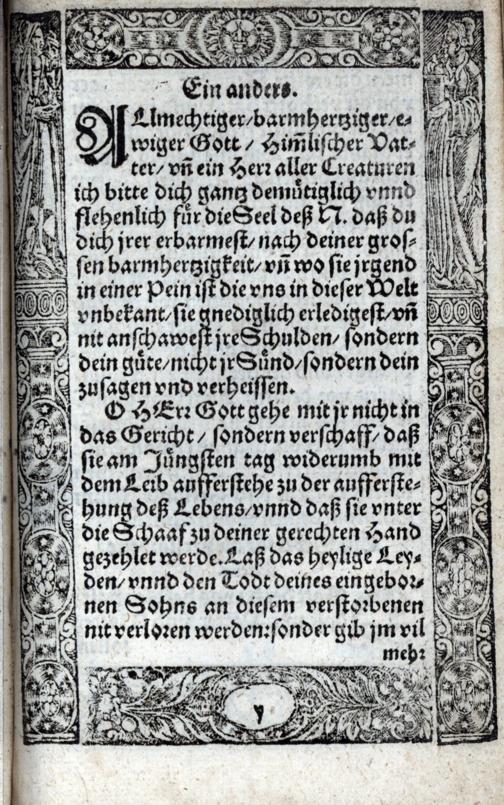 Ein anders.
ALlmechtiger/barmhertziger/e-
wiger Gott / Him̃lischer Vat-
ter/ vñ ein Herr aller Creaturen
ich bitte dich gantz demuͤtiglich vnnd
flehenlich fuͤr die Seel deß N. daß du
dich jrer erbarmest/ nach deiner gros-
sen barmhertzigkeit/ vñ wo sie jrgend
in einer Pein ist die vns in dieser Welt
vnbekant/ sie gnediglich erledigest/ vñ
nit anschawest jre Schulden/ sondern
dein guͤte/ nicht jr Suͤnd/ sondern dein
zusagen vnd verheissen.
O HErr Gott gehe mit jr nicht in
das Gericht / sondern verschaff/ daß
sie am Juͤngsten tag widerumb mit
dem Leib aufferstehe zu der aufferste-
hung deß Lebens/ vnnd daß sie vnter
die Schaaf zu deiner gerechten Hand
gezehlet werde. Laß das heylige Ley-
den/ vnnd den Todt deines eingebor-
nen Sohns an diesem verstorbenen
nit verloren werden: sonder gib jm vil
mehr
v